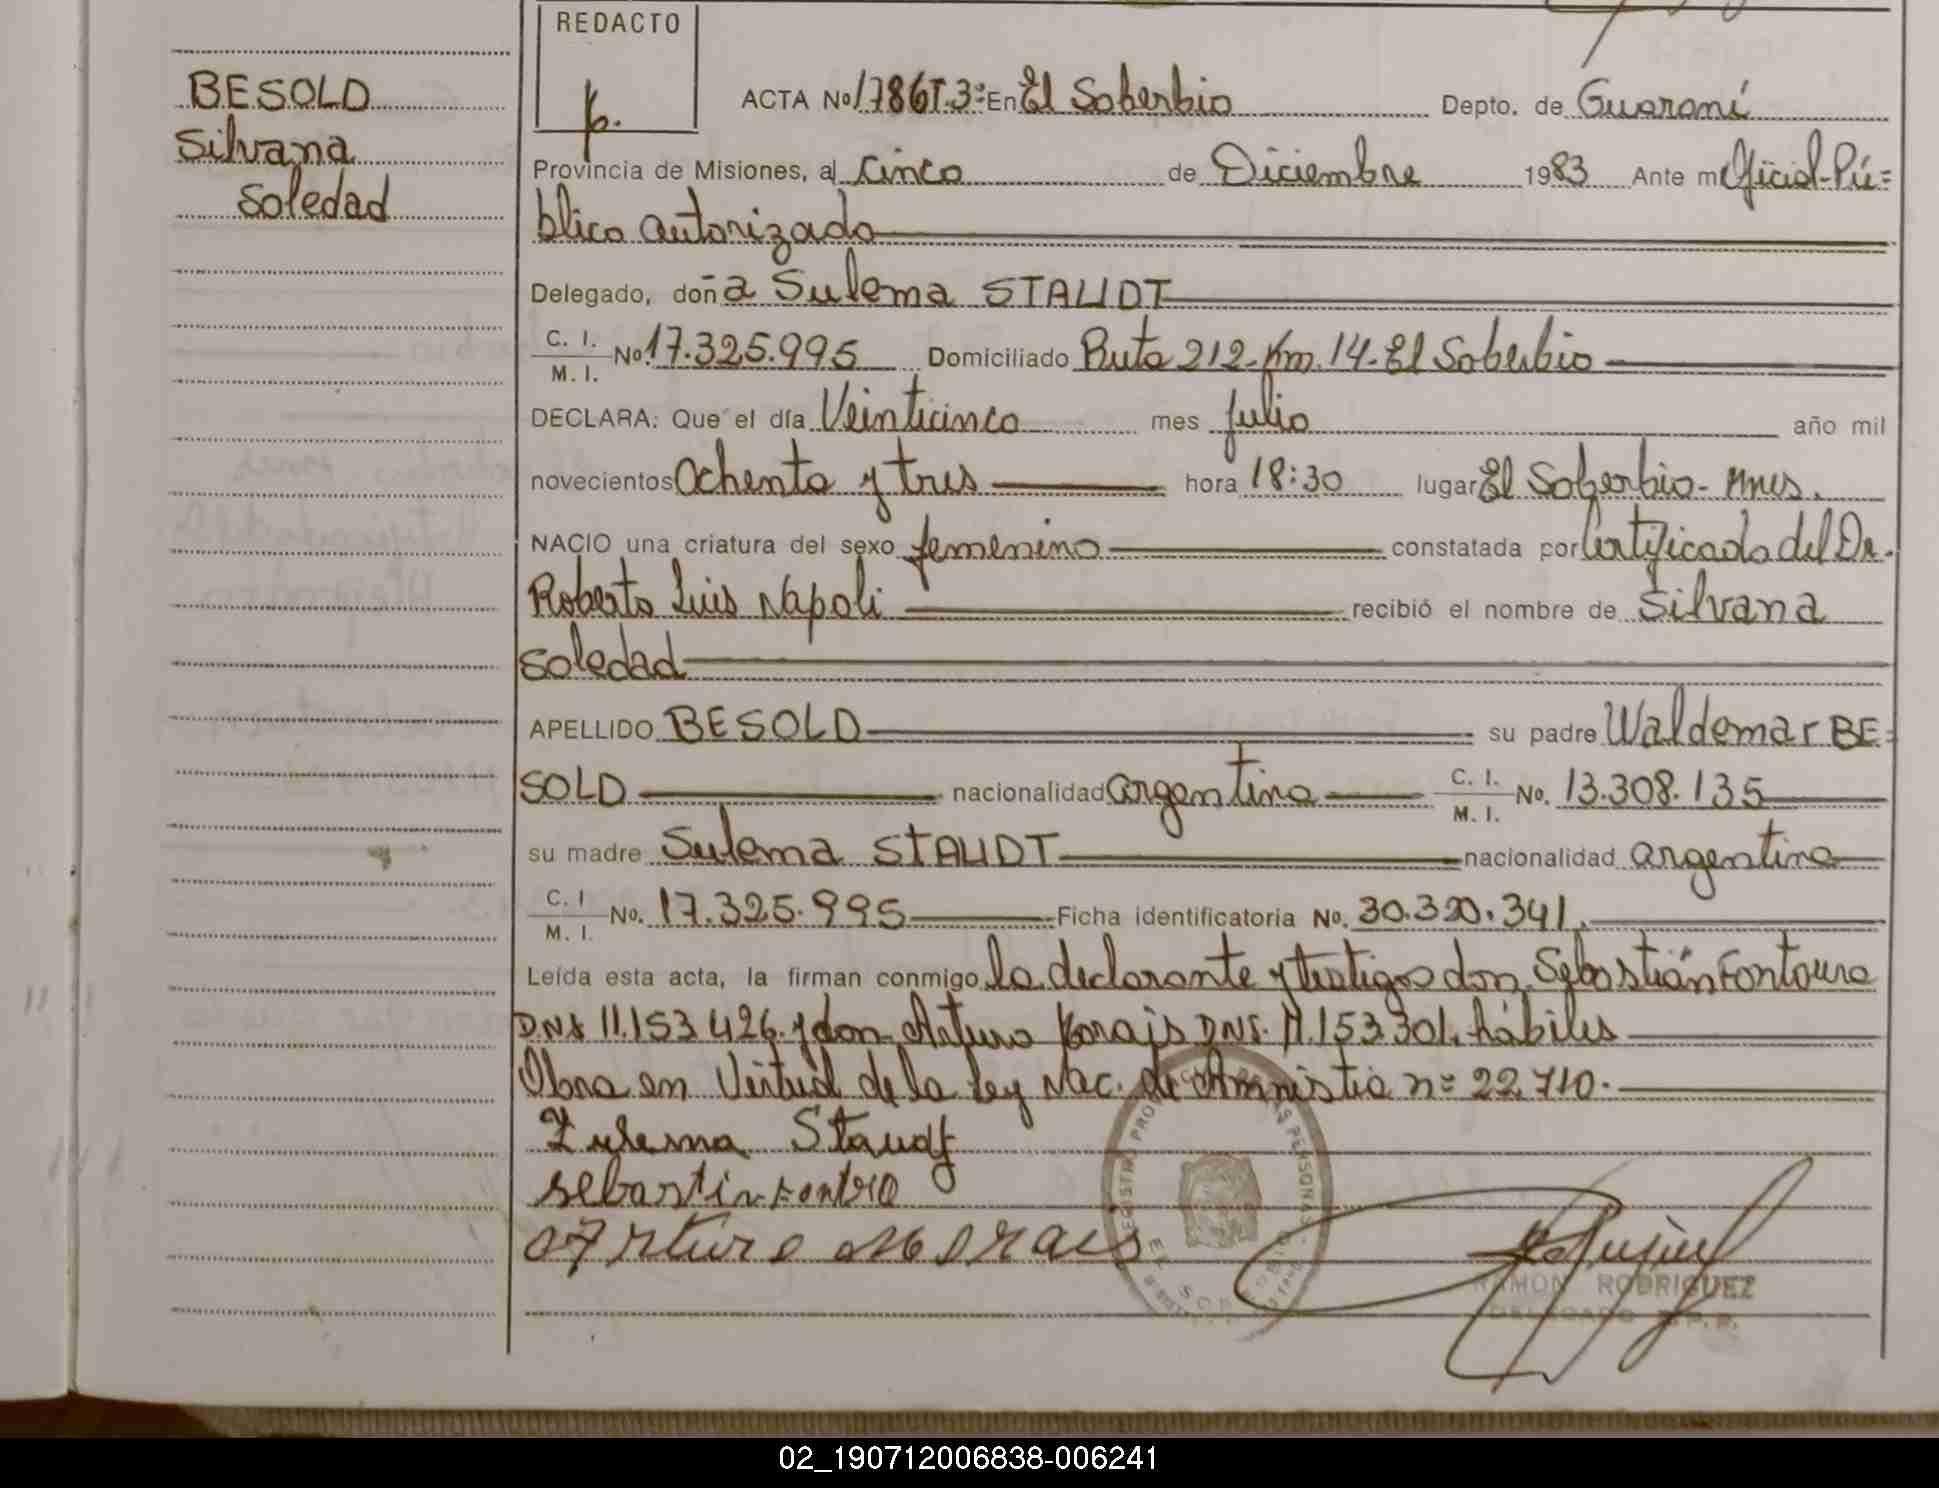 REDACTO
BESOLD
Silvana
Soledad
ACTA No 1786T.3º En El Soberbio Depto. de Guaraní
Provincia de Misiones, al cinco de Diciembre 1983 Ante mi Oficial Pú=
blico autorizado
Delegado, doña Sulema STAUDT
C. I. M. I. No. 17.325.995 Domiciliado Ruta 212-Km. 14-El Soberbio
DECLARA: Que el día Veinticinco mes Julio año mil
novecientos ochenta y tres hora 18:30 lugar El Soberbio- Mnes.
NACIO una criatura del sexo femenino constatada por Certificado del Dr.
Roberto Luis Napoli recibió el nombre de Silvana
Soledad
APELLIDO BESOLD su padre Waldemar BE=
SOLD nacionalidad argentina C. I. M. I. No. 13.308.135
su madre Sulema STAUDT nacionalidad argentina
C. I M. I. No. 17.325.995 Ficha identificatoria No. 30.320.341.
Leída esta acta, la firman conmigo la declarante y testigos don Sebastián Fontoura
DNI 11.153.426. y don Arturo Morais DNI. 11.153.301. hábiles
Obra en Virtud de la Ley Nac. de Amnistia nº 22.710.
Zulema Staudt
Arturo Morais
RAMON RODRIGUEZ
DELEGADO R.P.P.
02_190712006838-006241